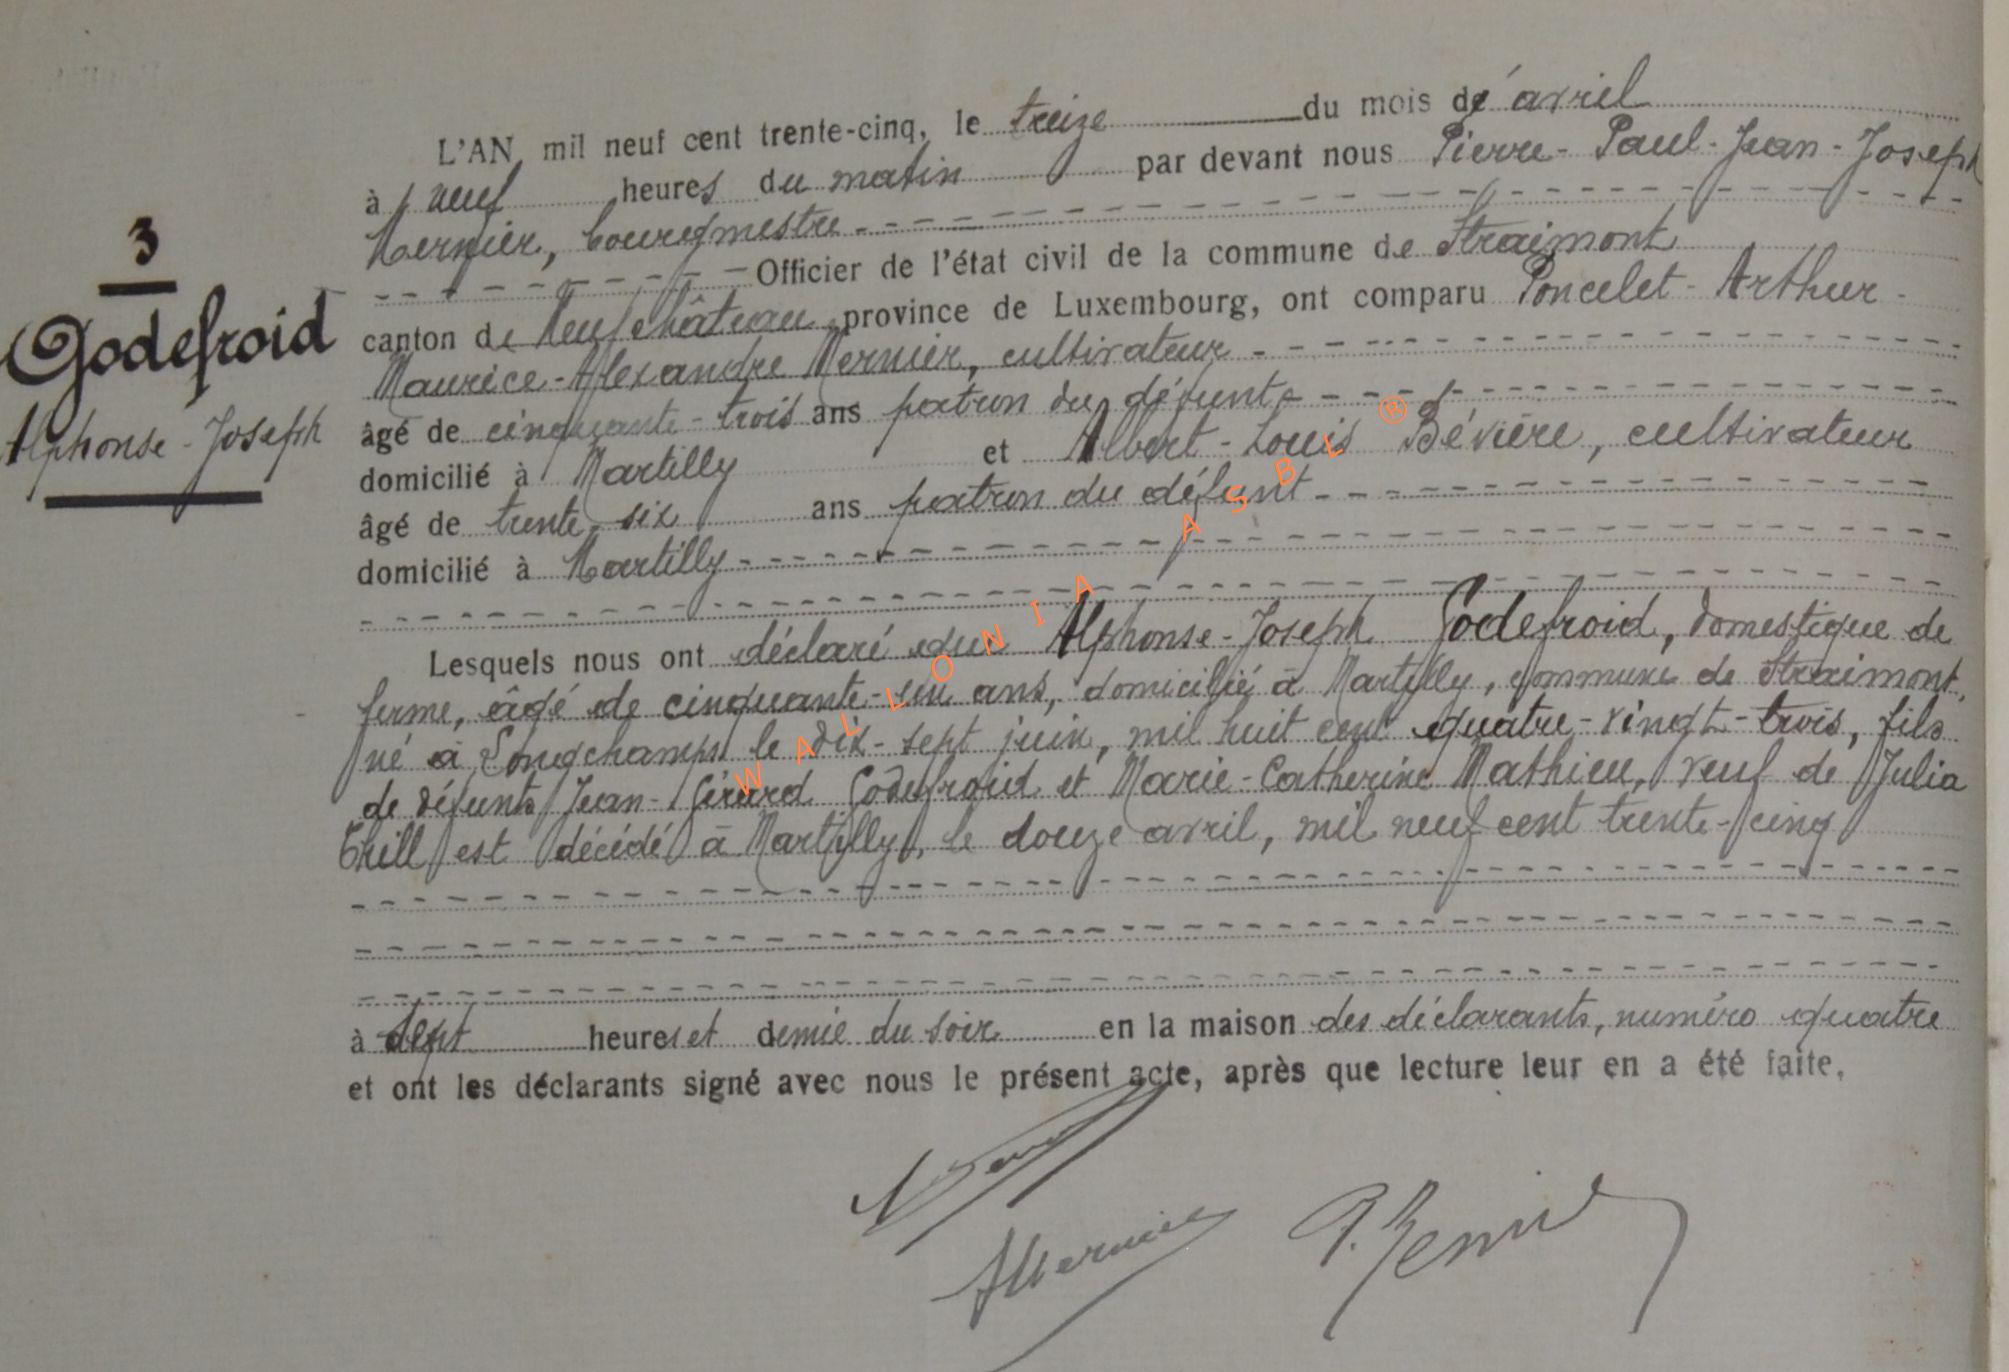 3
Godefroid
Alphonse-Joseph
L'AN mil neuf cent trente-cinq, le treize du mois d'avril
à neuf heures du matin par devant nous Pierre-Paul-Jean-Joseph
Mernier, bourgmestre
Officier de l'état civil de la commune de Straimont
canton de Neufchâteau province de Luxembourg, ont comparu Poncelet-Arthur-
Maurice-Alexandre Mernier, cultivateur
âgé de cinquante-trois ans patron du défunt
domicilié à Martilly et Albert-Louis Bévière, cultivateur
âgé de trente six ans patron du défunt
domicilié à Martilly
Lesquels nous ont déclaré que Alphonse-Joseph Godefroid, domestique de
ferme, âgé de cinquante-un ans, domicilié à Martilly, commune de Straimont,
né à Longchamps le dix-sept juin, mil huit cent quatre-vingt-trois, fils
de défunts Jean-Gérard Godefroid et Marie-Catherine Mathieu, veuf de Julia
Thill est décédé à Martilly, le douze avril, mil neuf cent trente-cinq
à sept heures et demie du soir en la maison des déclarants, numéro quatre
et ont les déclarants signé avec nous le présent acte, après que lecture leur en a été faite.
AMernier
WALLONIA ASBL ®